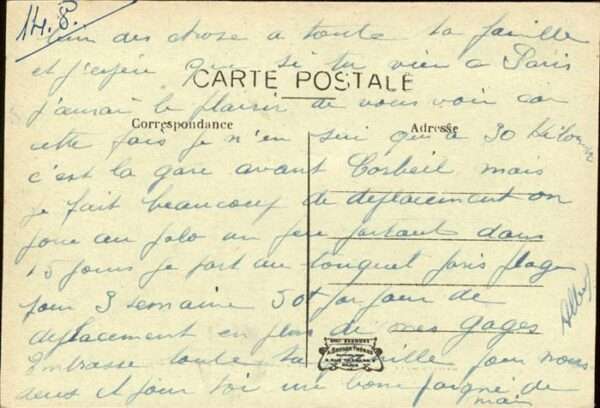 14.8.
bien des chose a toute ta famille
et j'espère que si tu vien a Paris
CARTE POSTALE
j'aurai le plaisir de vous voir car
Correspondance
Adresse
cette fois je n'en sui qu'a 30 kilom
c'est la gare avant Corbeil mais
je fait beaucoup de deplacement on
joue au polo un peu partout dans
15 jours je part au touquet paris plage
pour 3 semaine 50f par jour de
deplacement en plus de mes gages
Embrasse toute ta famille pour nous
deux et pour toi une bonne poigné de
main